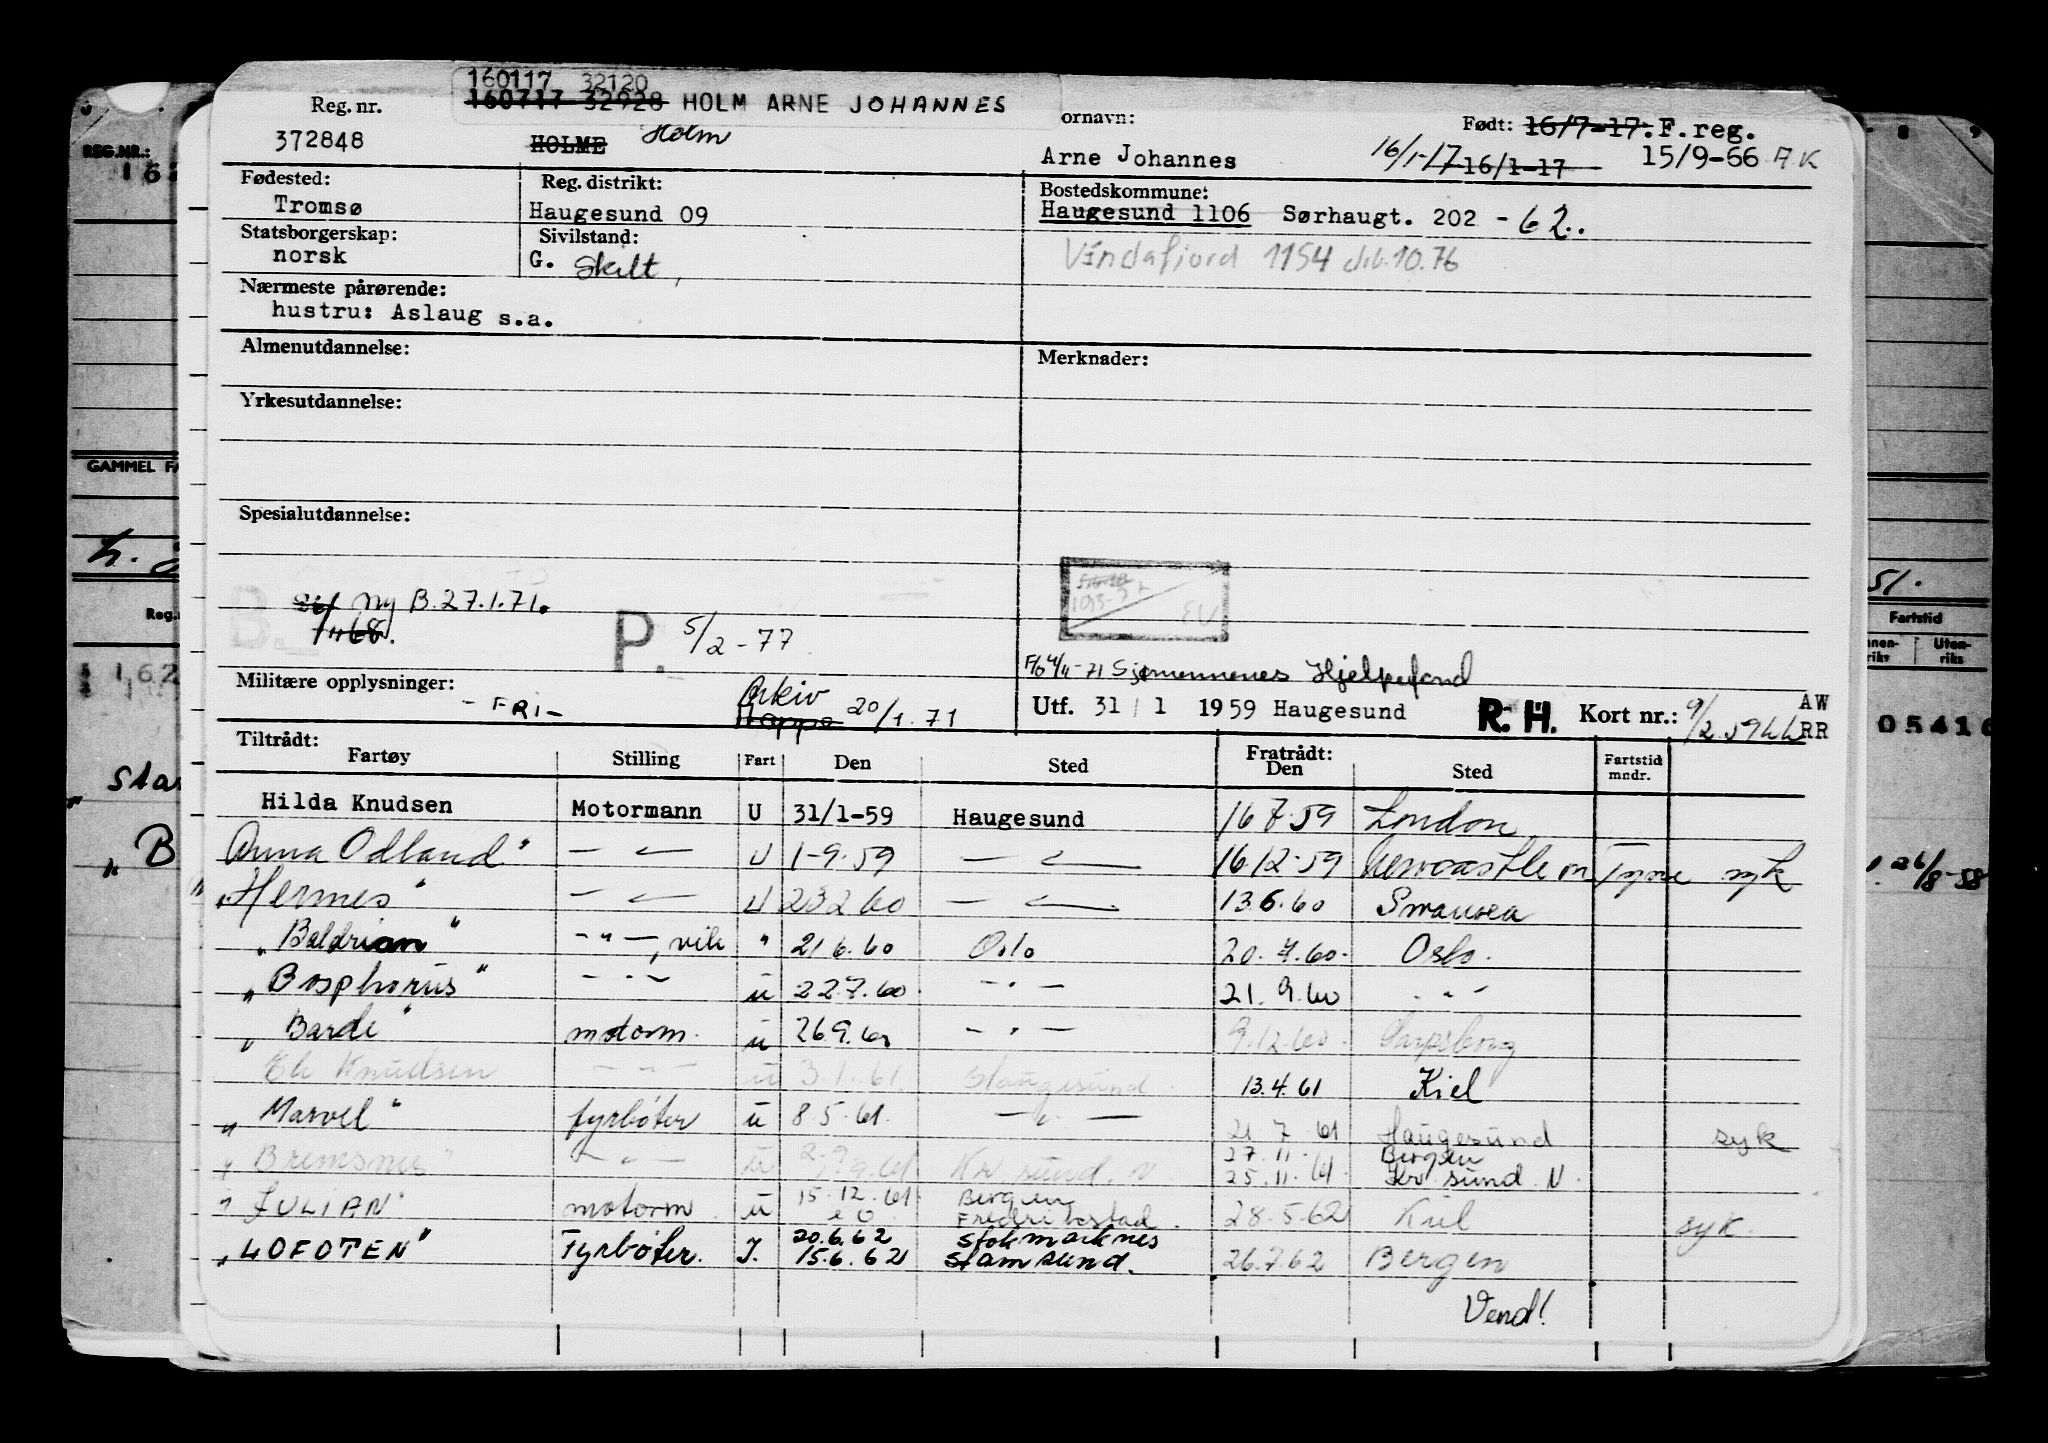 160117 32120
160717 32928 HOLM ARNE JOHANNES
Reg. nr. ornavn: Født: 16/7-17. F.reg.
372848 HOLME Holm Arne Johannes 16/1-17 16/1-17 15/9-66 AK
Fødested: Reg. distrikt: Bostedskommune:
Tromsø Haugesund 09 Haugesund 1106 Sørhaugt. 202 - 62.
Statsborgerskap: Sivilstand: Vindafjord 1154 10.76
norsk G. Skilt,
Nærmeste pårørende:
hustru: Aslaug s.a.
Almenutdannelse: Merknader:
Yrkesutdannelse:
Spesialutdannelse:
Ny B. 27.1.71.
P. 5/2-77
Sjømennenes Hjelpefond
Militære opplysninger: Arkiv
- FRI - 20/1.71 Utf. 31/1 1959 Haugesund R.H. Kort nr.: 9/2.59 AW
RR
Tiltrådt: Fratrådt:
Fartøy Stilling Fart Den Sted Den Sted Fartstid mndr.
Hilda Knudsen Motormann U 31/1-59 Haugesund 16.7.59 London
Anna Odland" — " — U 1-9-59 — " — 16.12.59 Newcastle on Tyne syk
"Hermes" — " — U 23 2 60 — " — 13.6.60 Swansea
"Baldrian" — " —, vik " 21 6.60 Oslo 20.7.60. Oslo.
"Bosphorus" — " — u 22.7.60 — " — 21.9.60 — " —
"Barde" motorm. u 26.9.60 — " — 9.12.60. Sarpsborg
Knudsen — " — u 3.1.61. Haugesund 13.4.61 Kiel
"Marvel" fyrbøter u 8.5.61. — " — 21 7 61 Haugesund syk
"Bremsnes" — " — u Kr.sund.N 27.11. Bergen
25.11.61. Kr.sund N.
"JULIAN" motorm. u 15.12.61 Bergen
Fredrikstad. 28.5.62 Kiel syk.
"LOFOTEN" Fyrbøter. I. 20.6.62 Stokmarknes
15.6.62 Stamsund. 26.7.62 Bergen
Vend!
REG.NR.:
GAMMEL FA
Reg.
162
Star
"B
8 9
51.
Fartstid
Uten-
riks
05416
26/8-58